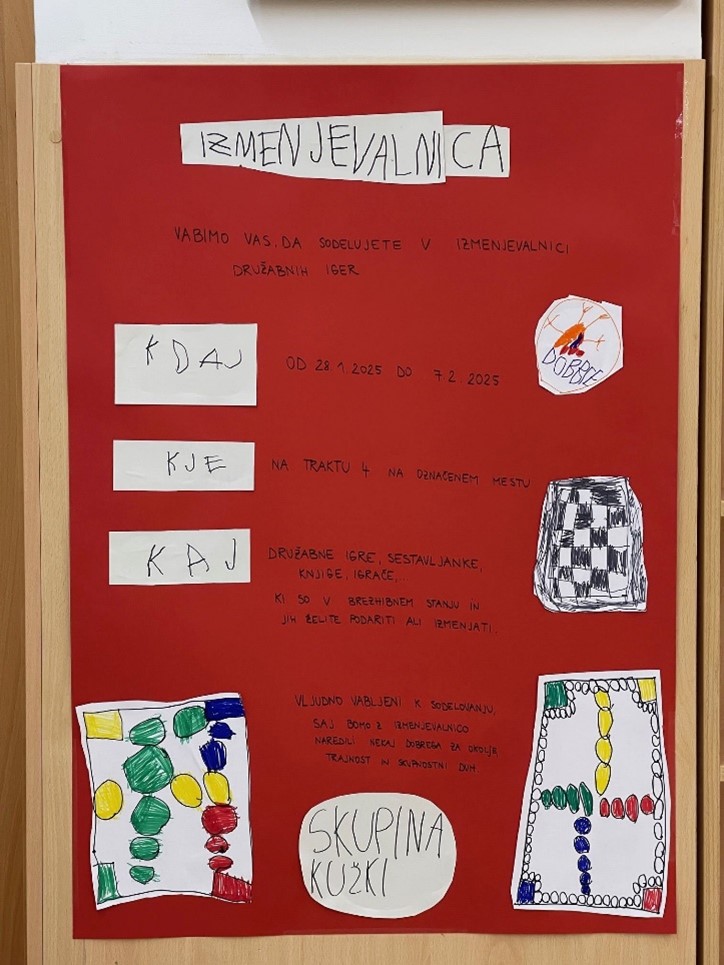 IZMENJEVALNICA
VABIMO VAS, DA SODELUJETE V IZMENJEVALNICI
DRUŽABNIH IGER
KDAJ
OD 28.1.2025 DO 7.2.2025
DOBBLE
KJE
NA TRAKTU 4 NA OZNAČENEM MESTU
KAJ
DRUŽABNE IGRE, SESTAVLJANKE,
KNJIGE, IGRAČE,..
KI SO V BREZHIBNEM STANJU IN
JIH ŽELITE PODARITI ALI IZMENJATI.
VLJUDNO VABLJENI K SODELOVANJU,
SAJ BOMO Z IZMENJEVALNICO
NAREDILI NEKAJ DOBREGA ZA OKOLJE,
TRAJNOST IN SKUPNOSTNI DUH.
SKUPINA
KUŽKI